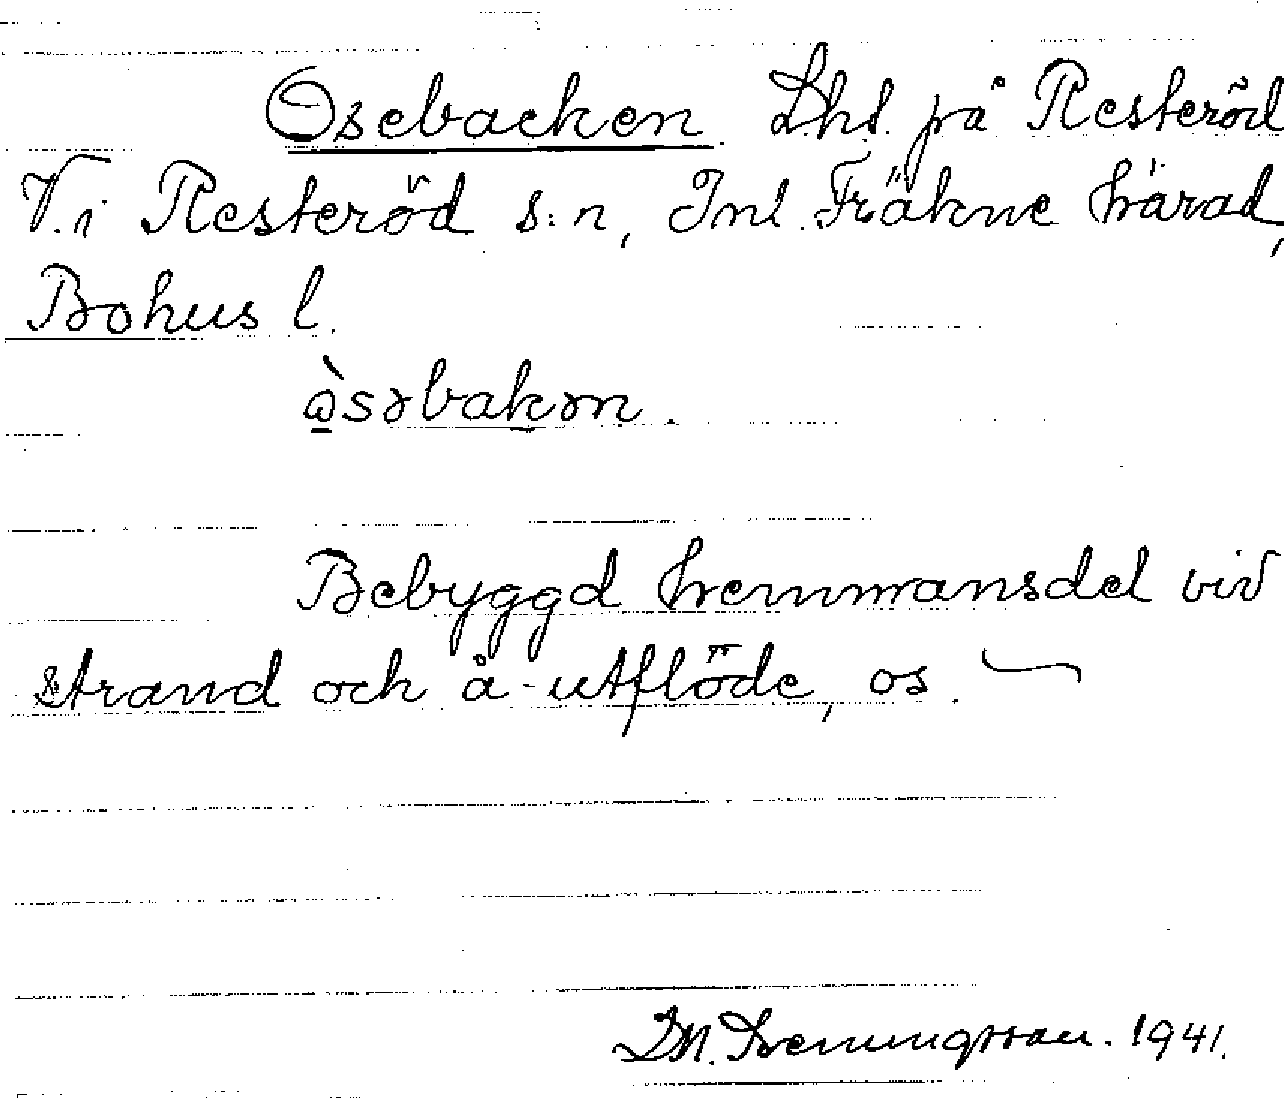 Osebacken. Lht. på Resteröd
V. i Resteröd s:n, Inl. Fräkne härad,
Bohus l.
ɷ̀səbakən.
Bebyggd hemmansdel vid
strand och å-utflöde, os.
1941.